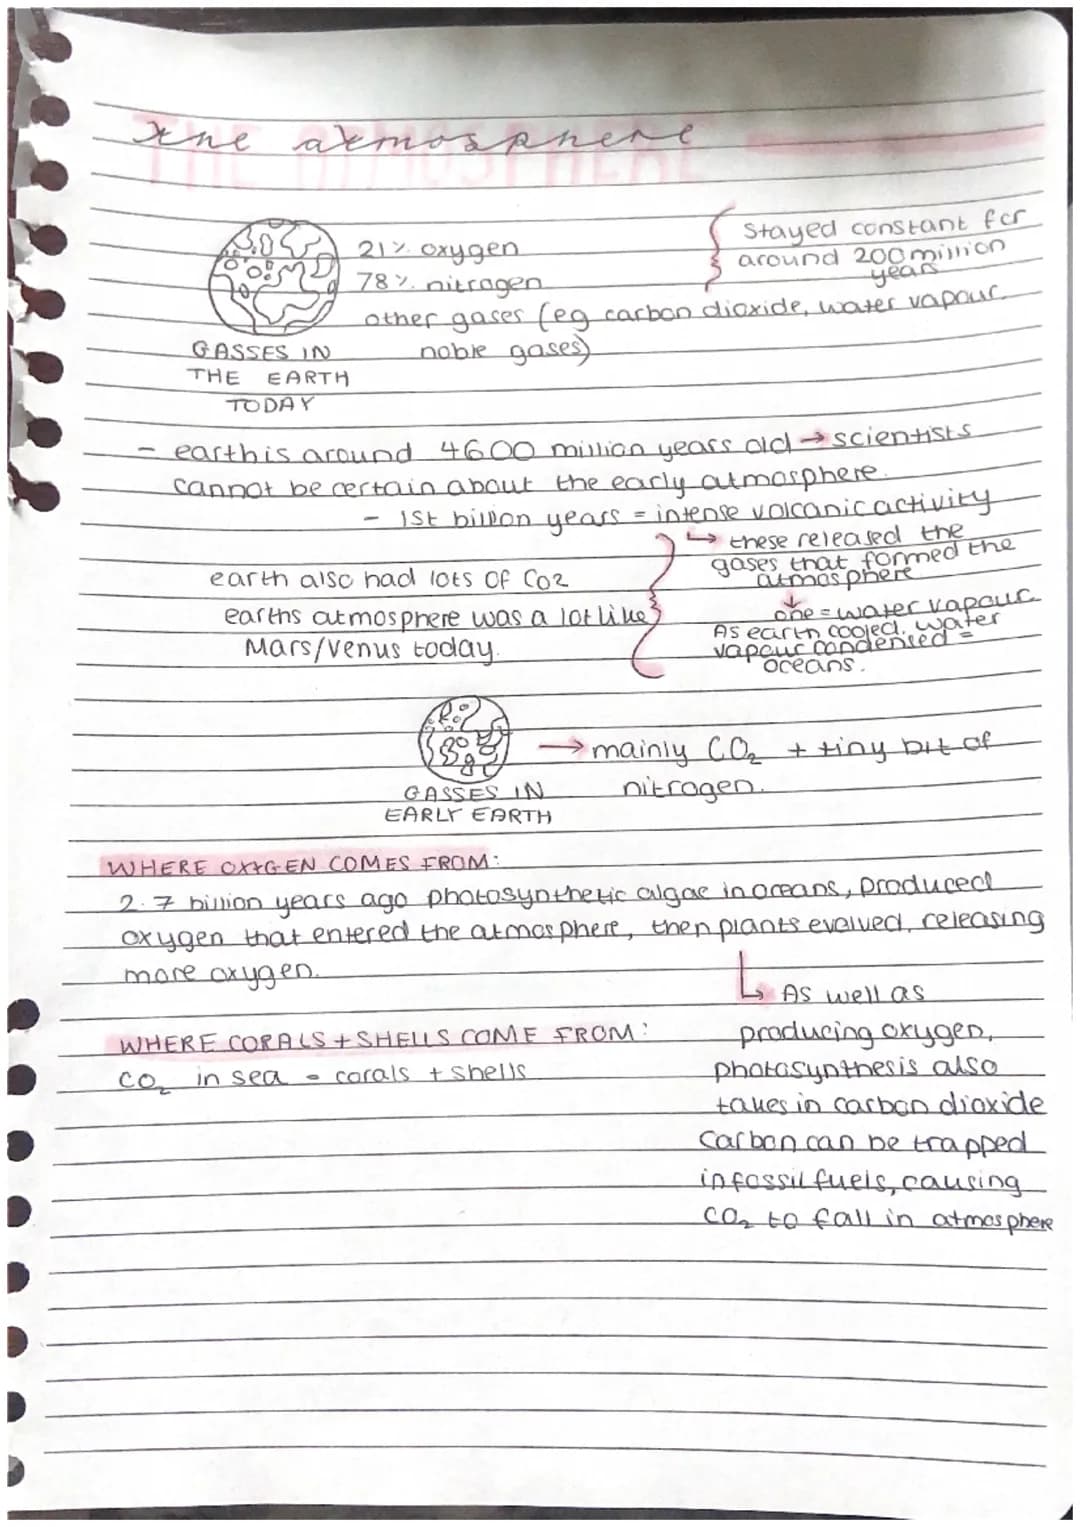 the atmosphere
THE ATMOSPHERE
21% oxygen
78% nitrogen
other gases (eg carbon dioxide, water vapour
noble gases)
Stayed constant for
around 200 million
years
GASSES IN
THE EARTH
TODAY
- earth is around 4600 million years old → scientists
cannot be certain about the early atmosphere.
- 1st billion years = intense volcanic activity
↳ these released the
gases that formed the
atmosphere
↓
one = water vapour
As earth cooled, water
vapour condensed =
oceans.
earth also had lots of CO2
earths atmosphere was a lot like
Mars/Venus today.
→ mainly CO₂ + tiny bit of
nitrogen.
GASSES IN
EARLY EARTH
WHERE OXYGEN COMES FROM:
2.7 billion years ago photosynthetic algae in oceans, produced
oxygen that entered the atmosphere, then plants evolved, releasing
more oxygen.
↳ As well as
producing oxygen,
photosynthesis also
takes in carbon dioxide
Carbon can be trapped
in fossil fuels, causing
CO₂ to fall in atmosphere
WHERE CORALS + SHELLS COME FROM:
CO₂ in sea - corals + shells